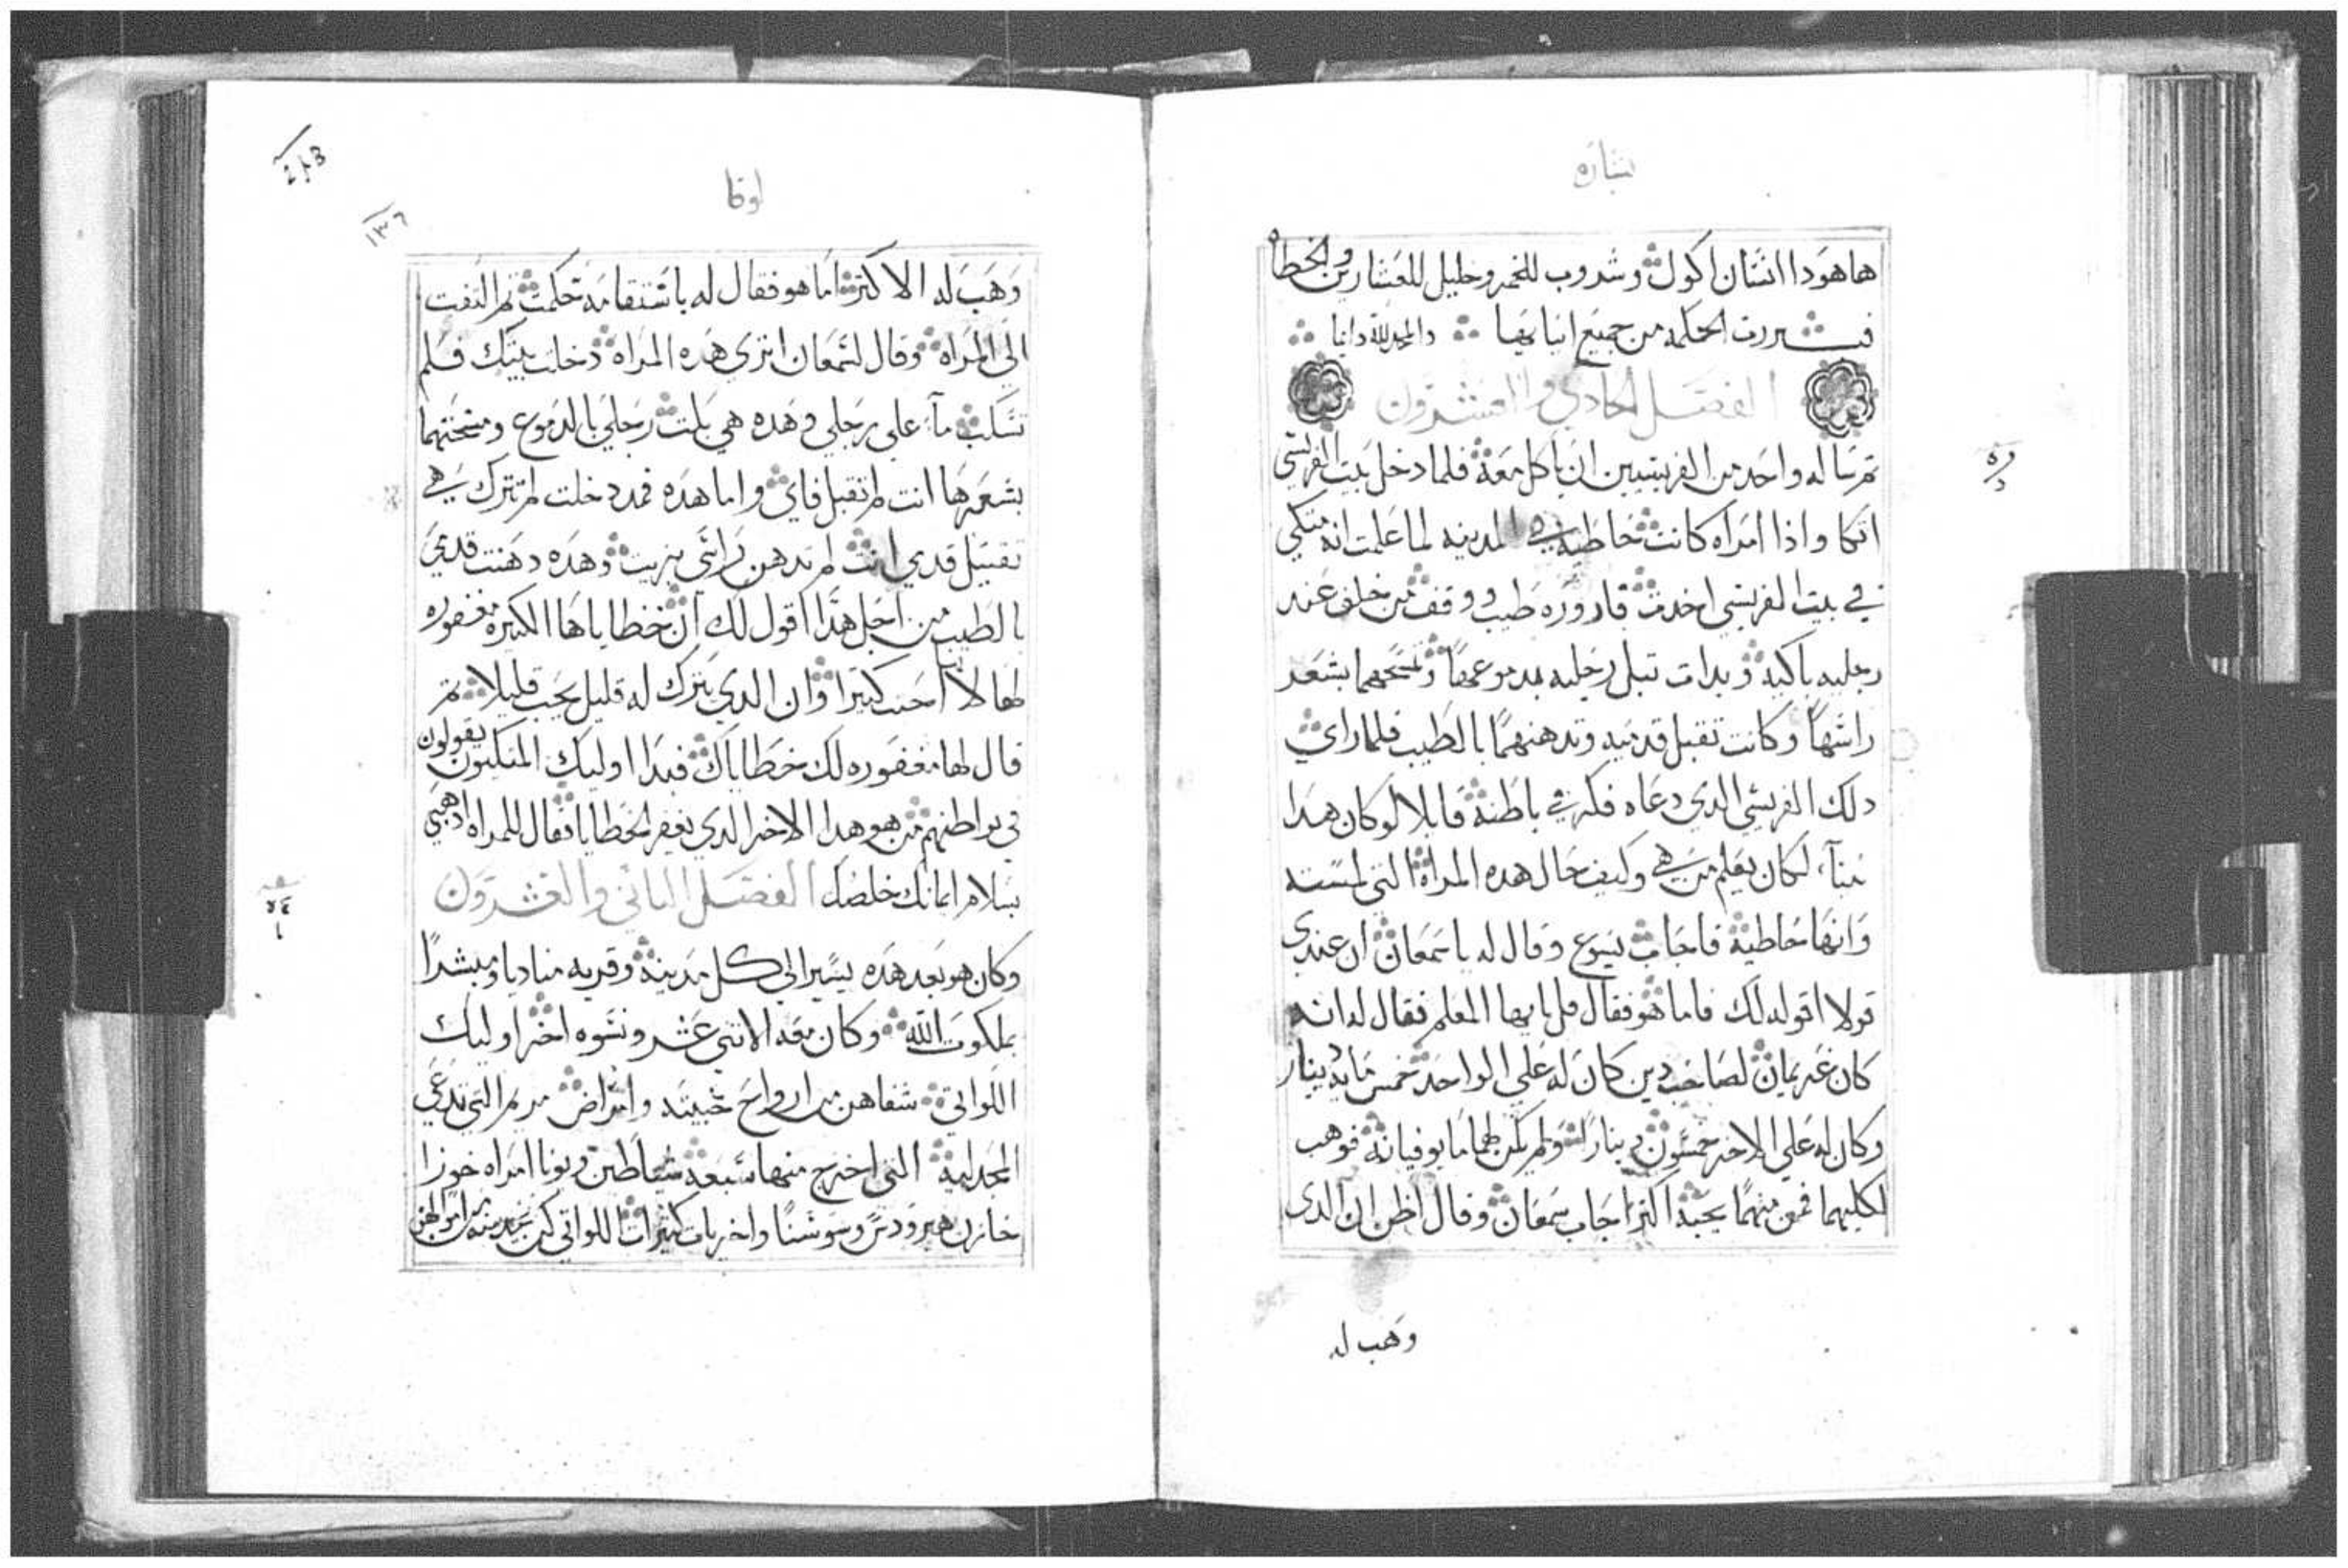 بشاره
هاهودا انسان اكول وشروب للخمر وخليل للعشارين والخطاه
فتبررت الحكمه من جميع ابنايها والمجد لله دايما
الفصل الحادي والعشرون
ثم ساله واحد من الفريسيين ان ياكل معه فلما دخل بيت الفريسي
اتكا واذا امراه كانت خاطيه في المدينه لما علمت انه متكي
في بيت الفريسي اخدت قاروره طيب ووقفت من خلف عند
رجليه باكيه وبدات تبل رجليه بدموعها وتمسحهما بشعر
راسها وكانت تقبل قدميه وتدهنهما بالطيب فلما راي
دلك الفريسي الدي دعاه فكر في باطنه قايلا لو كان هدا
نبيآ لكان يعلم من هي وكيف حال هده المراه التي لمسته
وانها خاطيه فاجاب يسوع وقال له يا سمعان ان عندي
قولا اقوله لك فاما هو فقال قل يا ايها المعلم فقال له انه
كان غريمان لصاحب دين كان له علي الواحد خمس مايه دينار
وكان له علي الاخر خمسون دينارا ولم يكن لهما ما يوفيانه فوهب
لكليهما فمن منهما يحبه اكثر اجاب سمعان وقال اظن ان الدي
وهب له
لوقا
١٣٦
وهب له الاكثر اما هو فقال له باستقامه حكمت ثم التفت
الي المراه وقال لسمعان اتري هده المراه دخلت بيتك فلم
تسكب مآ علي رجلي وهده هي بلت رجلي بالدموع ومسحتهما
بشعرها انت لم تقبل فاي واما هده فمد دخلت لم تترك هي
تقبيل قدمي انت لم تدهن راسي بزيت وهده دهنت قدمي
بالطيب من اجل هدا اقول لك ان خطاياها الكثيره مغفوره
لها لانها احبت كثيرا وان الدي يترك له قليل يحب قليلا ثم
قال لها مغفوره لك خطاياك فبدا اوليك المتكيون يقولون
في بواطنهم من هو هدا الاخر الدي يغفر الخطايا فقال للمراه ادهبي
بسلام ايمانك خلصك الفصل التاني والعشرون
وكان هو بعد هده يسير الي كل مدينه وقريه مناديا ومبشرا
بملكوت الله وكان معه الاثني عشر ونسوه اخر اوليك
اللواتي شفاهن من ارواح خبيثه وامراض مريم التي تدعي
المجدليه التي اخرج منها سبعه شياطين ويونا امراه خوزا
خازن هيرودس وسوسنا واخريات كثيرات اللواتي كن يخدمنه من اموالهن